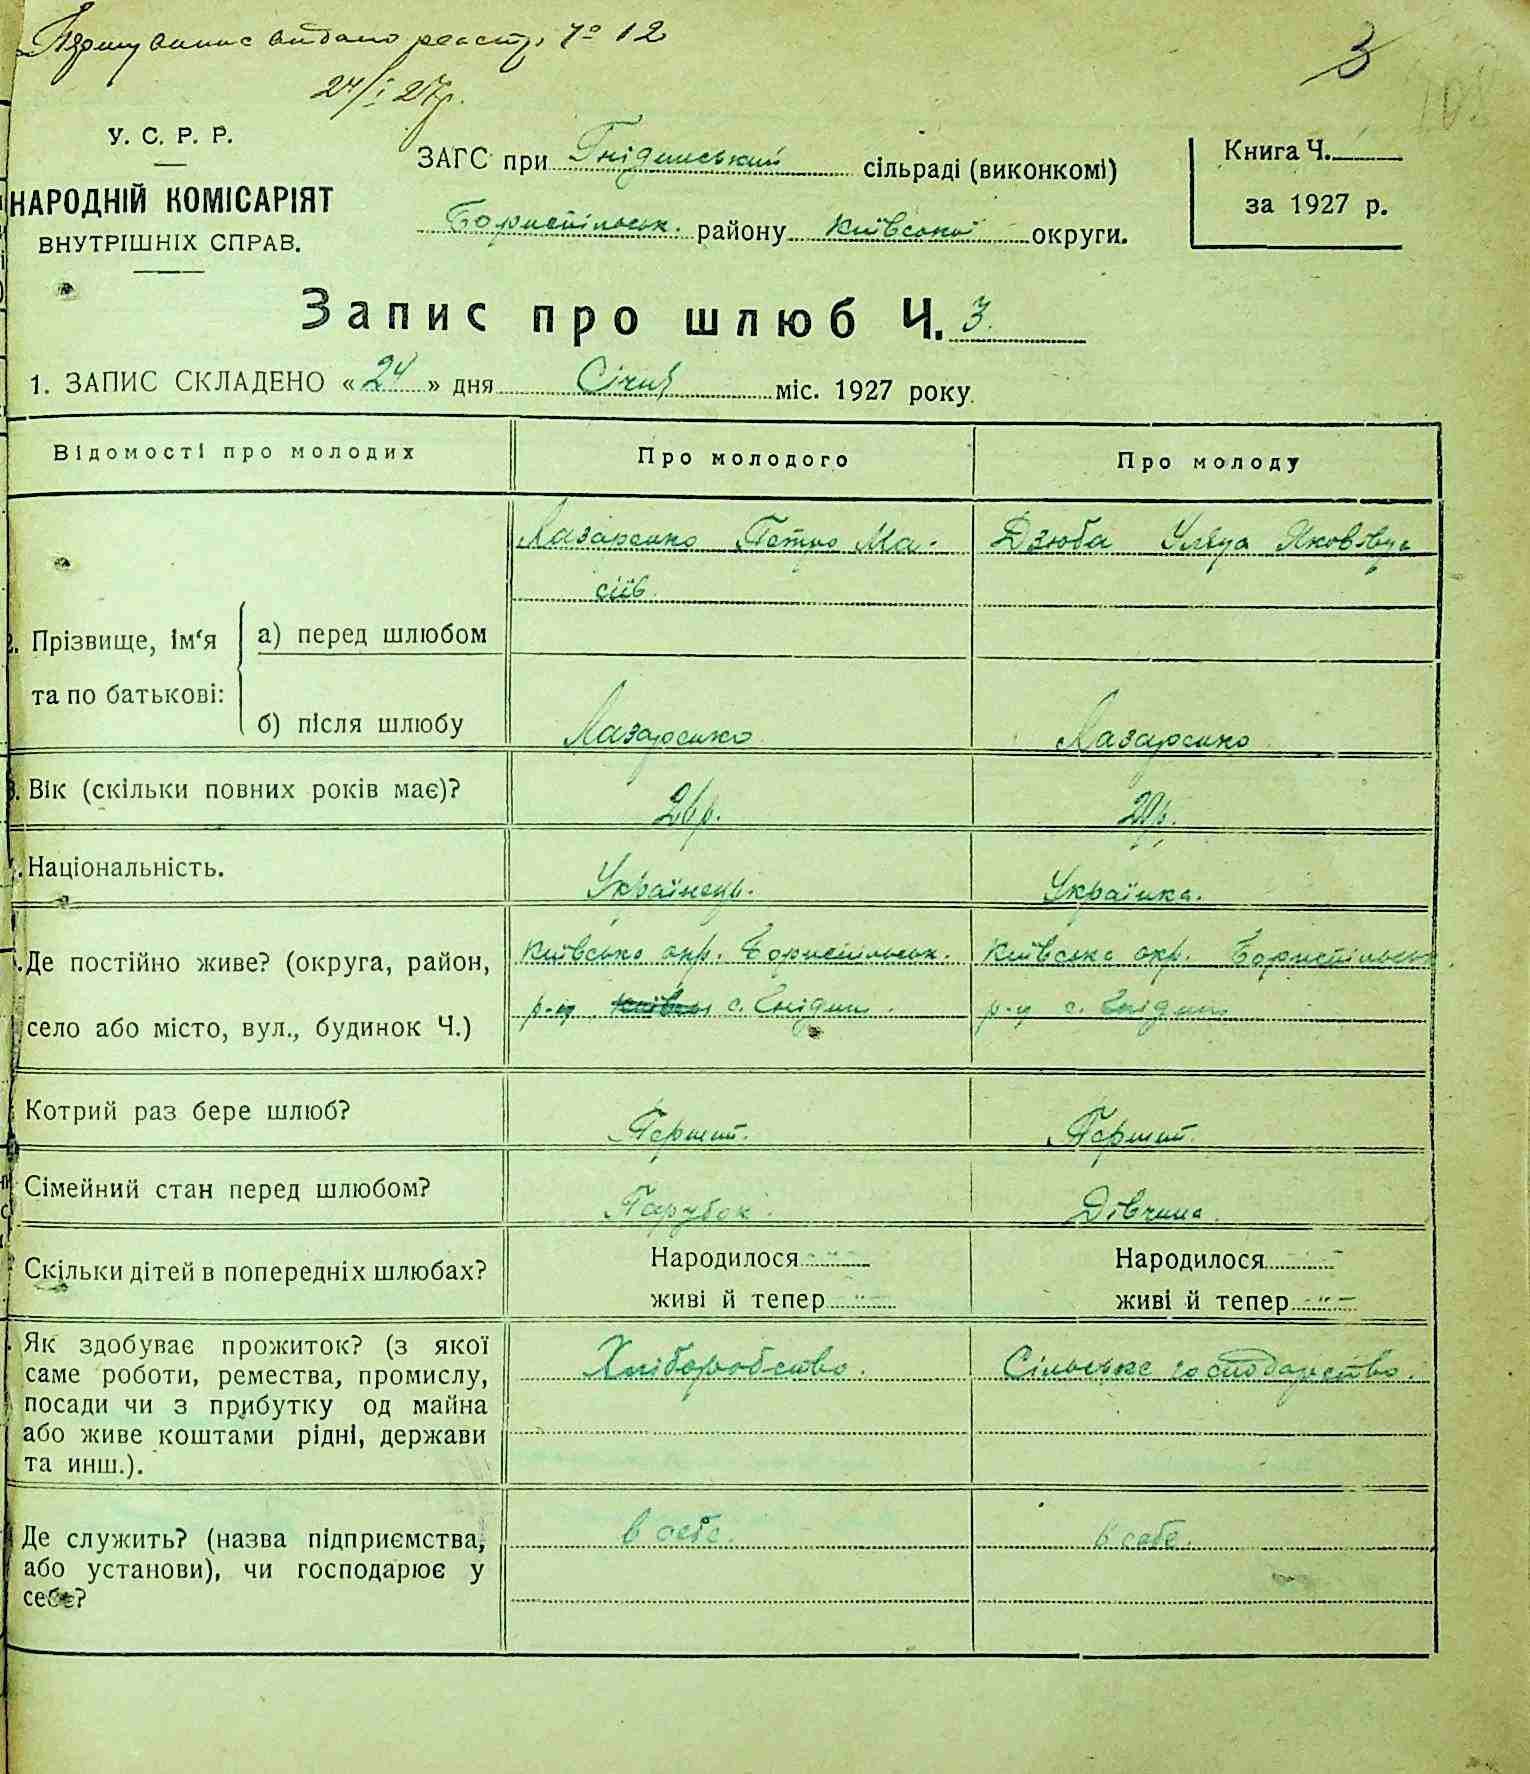 видано реєстр. № 12
24/I 27р.
3
У. С. Р. Р.
НАРОДНІЙ КОМІСАРІЯТ
ВНУТРІШНІХ СПРАВ.
ЗАГС при Гнідинській сільраді (виконкомі)
Бориспільськ. району Київської округи.
Книга Ч.
за 1927 р.
Запис про шлюб Ч. 3
1. ЗАПИС СКЛАДЕНО « 24 » дня Січня міс. 1927 року.
Відомості про молодих Про молодого Про молоду
Лазаренко Петро Ма- Дзюба Яковівна
сіїв.
Прізвище, ім‘я та по батькові:
а) перед шлюбом
б) після шлюбу Лазаренко Лазаренко
3. Вік (скільки повних років має)? 26р. 20р.
Національність. Українець. Українка.
Де постійно живе? (округа, район, Київська окр. Бориспільськ. Київська окр. Бориспільськ.
село або місто, вул., будинок Ч.) р-н с. Гнідин. р-н с. Гнідин
Котрий раз бере шлюб? Перший. Перший.
Сімейний стан перед шлюбом? Парубок. Дівчина.
Скільки дітей в попередніх шлюбах? Народилося -"- Народилося -"-
живі й тепер -"- живі й тепер -"-
Як здобуває прожиток? (з якої
саме роботи, ремества, промислу, Хліборобство. Сільське господарство.
посади чи з прибутку од майна
або живе коштами рідні, держави
та инш.).
Де служить? (назва підприємства, в себе. в себе.
або установи), чи господарює у
себе?